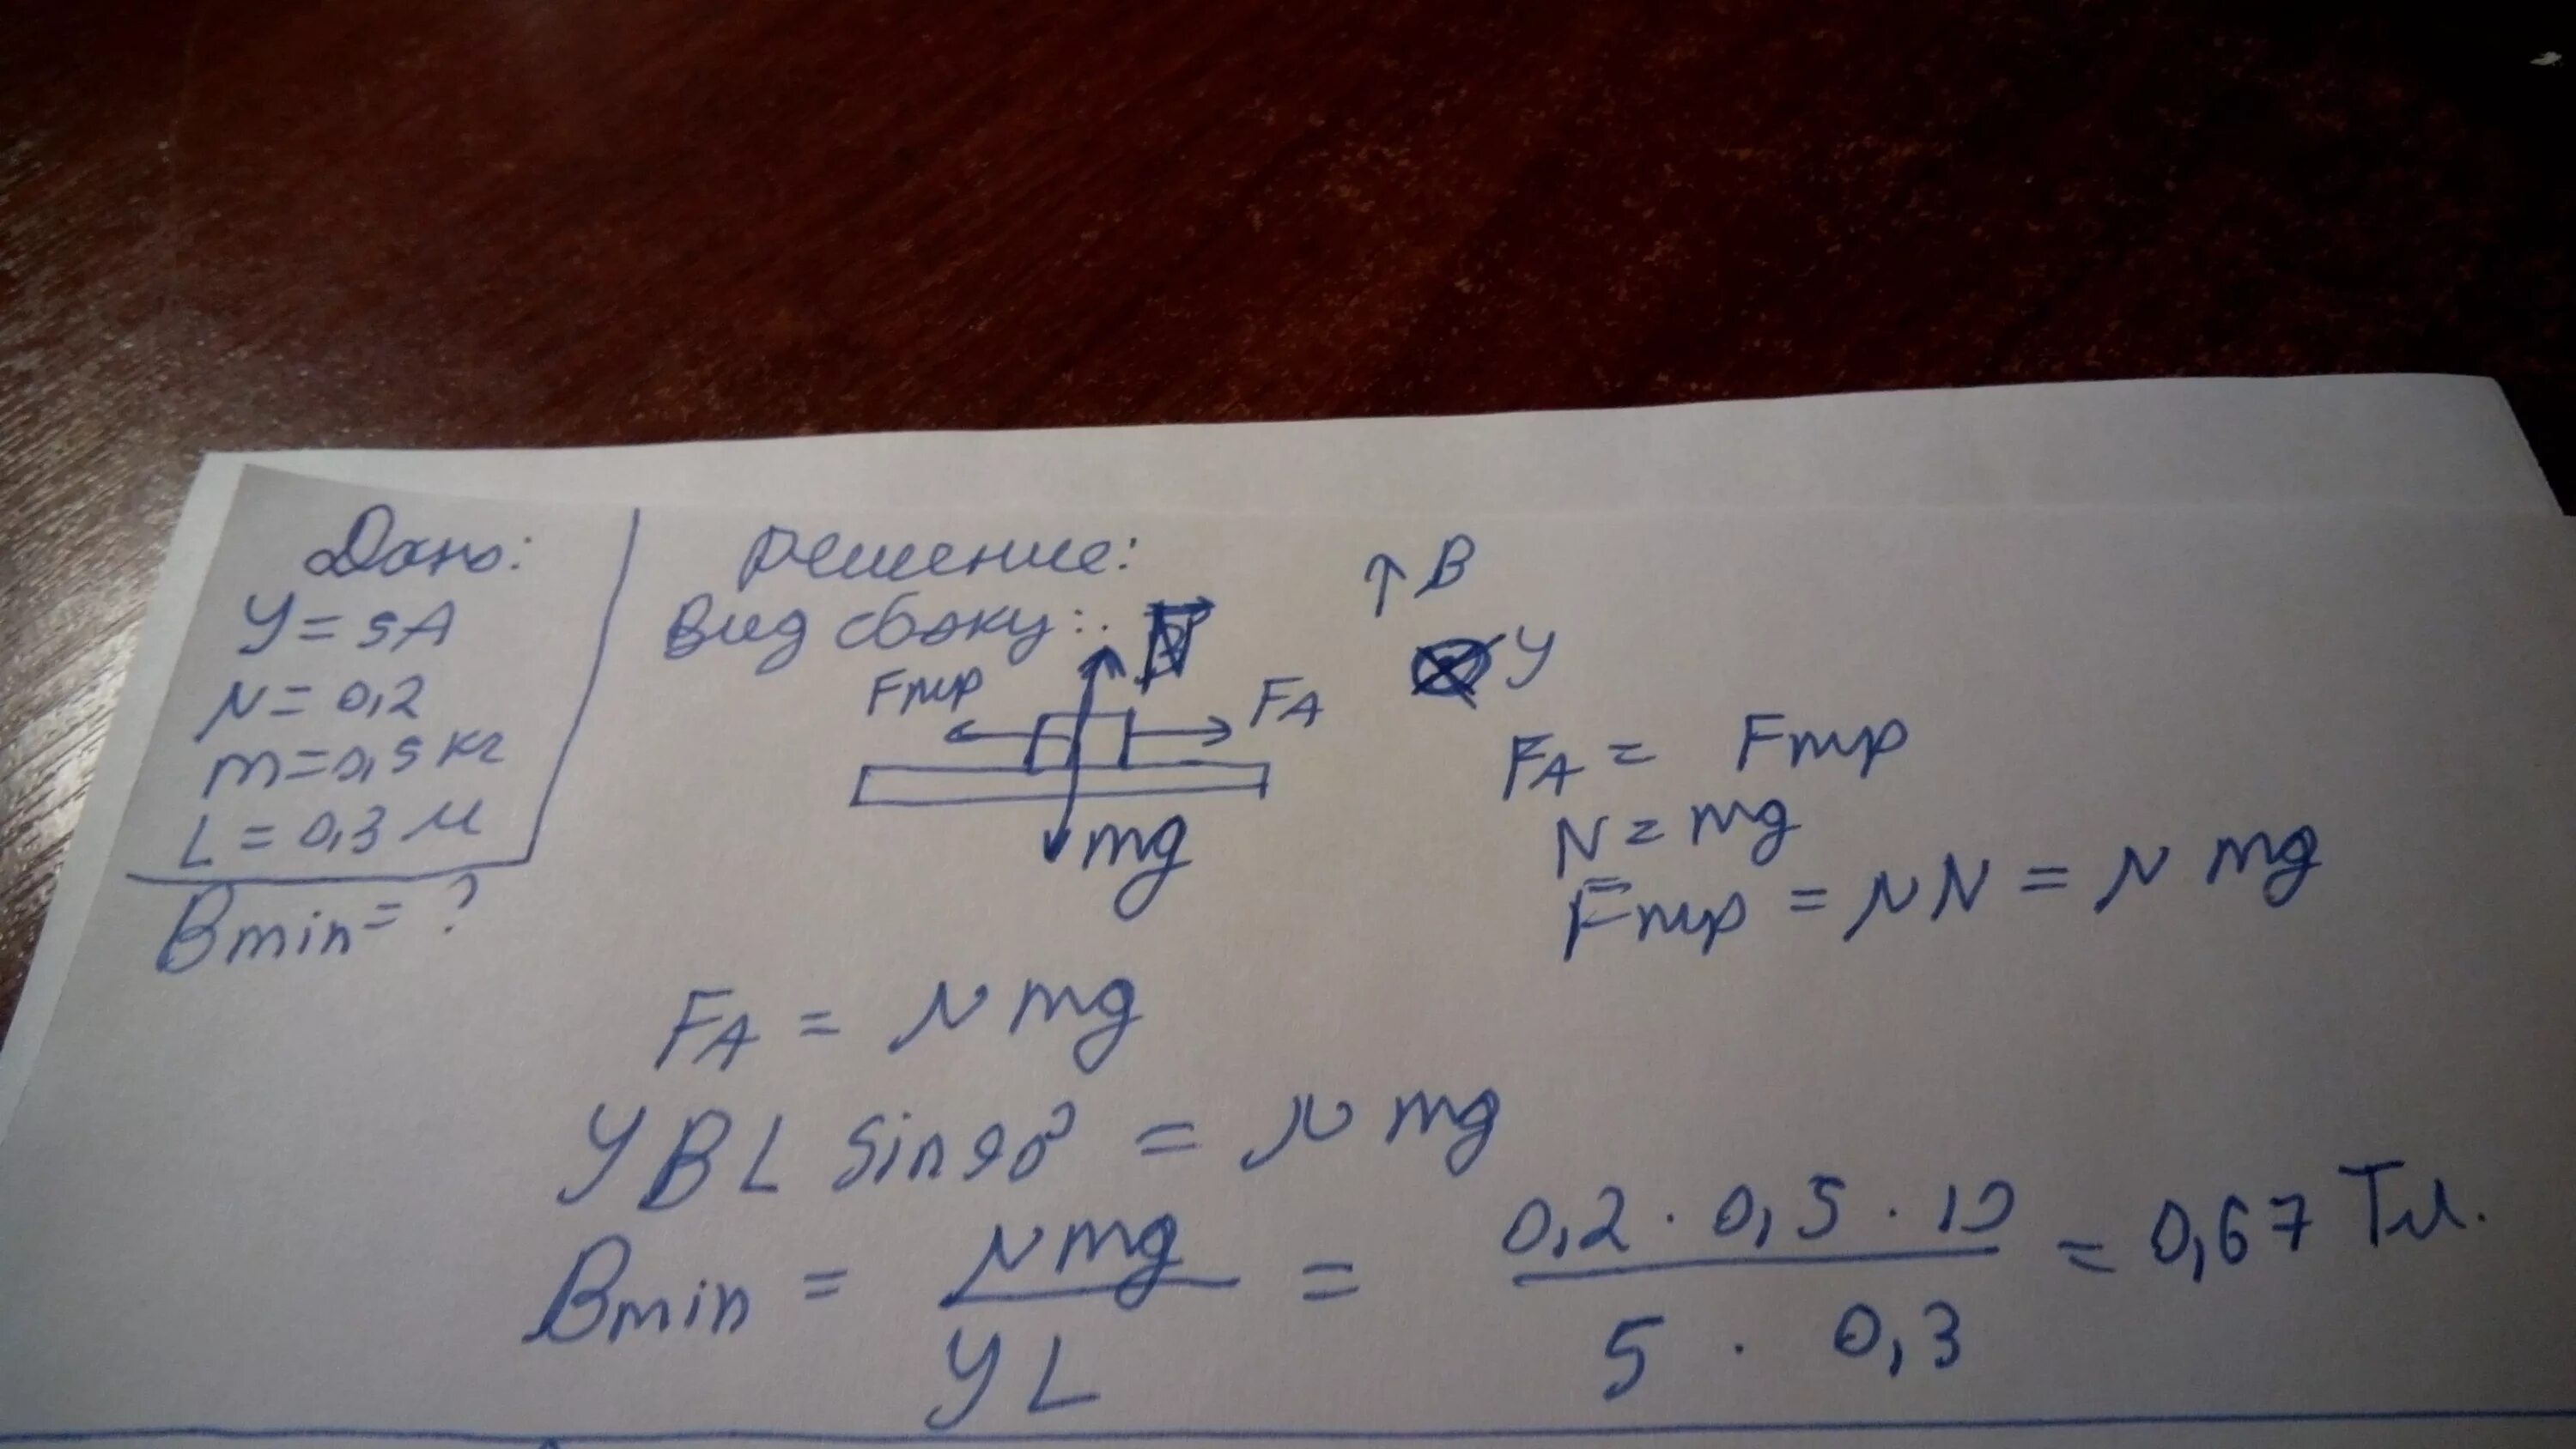 Дано:
У = 5А
μ = 0,2
m = 0,5 кг
L = 0,3 м
Bmin = ?
Решение:
Вид сбоку:
N
Fтр
FA
mg
↑ B
⊗ У
FA = Fтр
N = mg
Fтр = μN = μ mg
FA = μ mg
У B L sin 90° = μ mg
Bmin = μ mg / У L = 0,2 · 0,5 · 10 / 5 · 0,3 = 0,67 Тл.